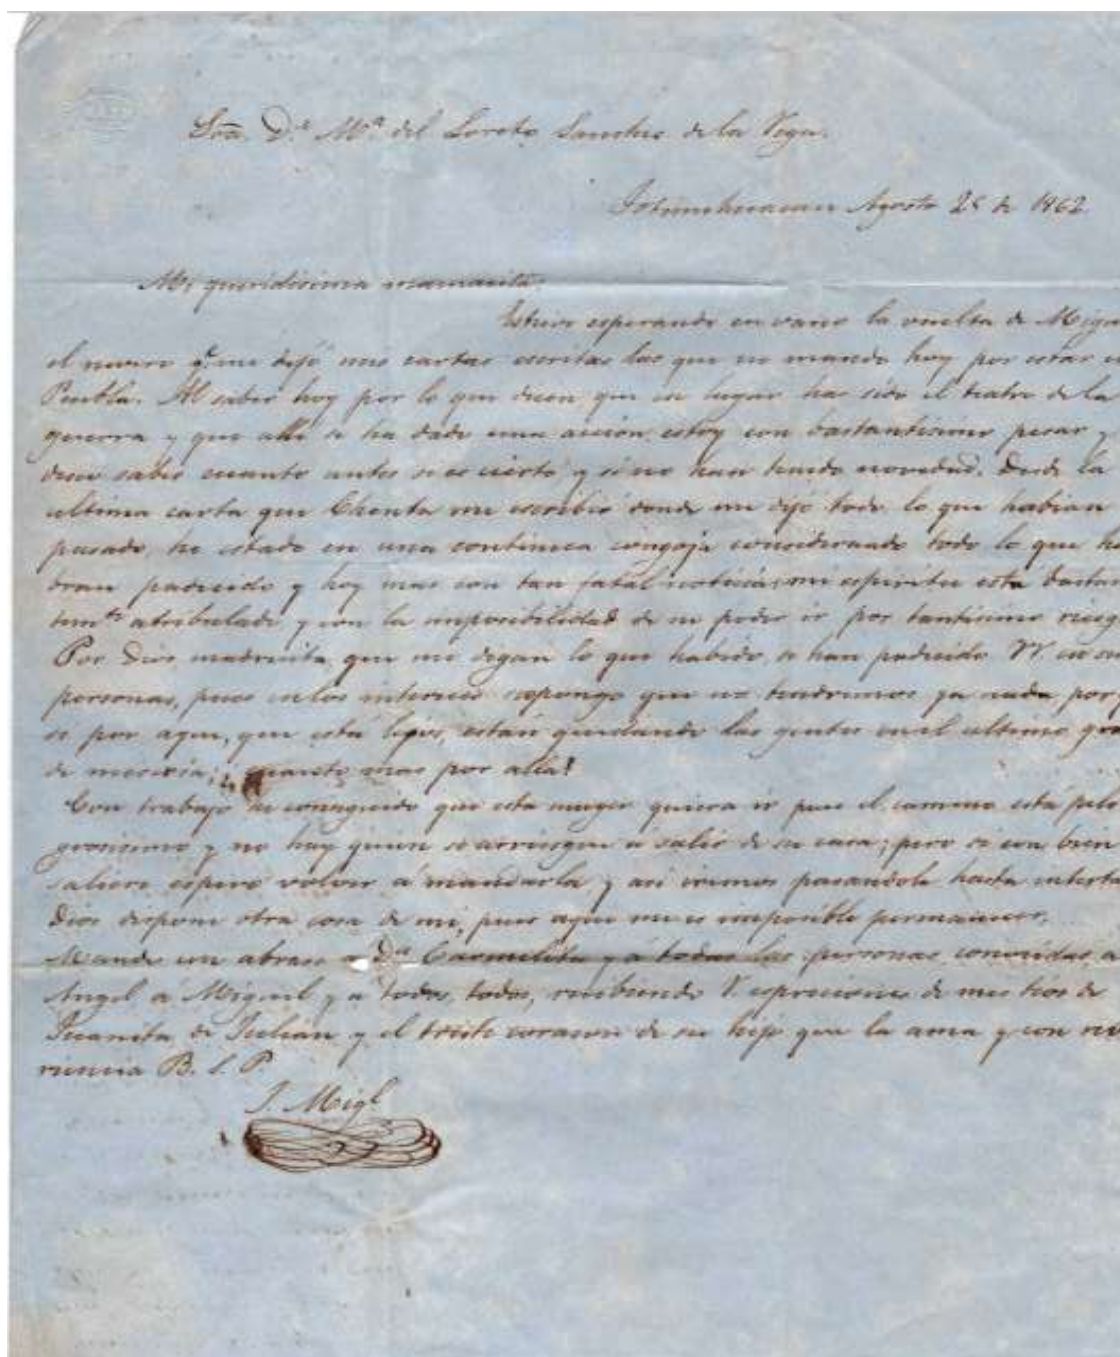 Sra. D.ª M.ª del Loreto Sanches de la Vega.
Agosto 25 de 1862
Mi queridisima mamacita:
Estuve esperando en vano la vuelta de Migu
el q.e me dejó unas cartas escritas las que no mando hoy por estar e
Puebla. Al saber hoy por lo que dicen que ese lugar ha sido el teatro de la
guerra y que allí se ha dado una acción, estoy con bastantisimo pesar y
deseo saber cuanto antes si es cierto y si no han tenido novedad. Desde la
ultima carta que Chenta me escribió donde me dijo todo lo que habian
pasado, he estado en una continua congoja considerando todo lo que ha
bran padecido y hoy mas con tan fatal noticia; mi espiritu esta bastan
tem.te atribulado y con la imposibilidad de no poder ir por tantisimo riesg
Por Dios madrecita, que me digan lo que habido, si han padecido VV en su
personas, pues en los intereses supongo que no tendremos ya nada por
si por aqui, que está lejos, están quedando las gentes en el ultimo gra
de miseria; cuanto mas por allá!
Con trabajo he conseguido que esta muger quiera ir pues el camino está peli
grosisimo y no hay quien se arriesgue á salir de su casa; pero si con bien
saliere, espero volver á mandarla, y asi iremos pasandola hasta
Dios dispone otra cosa de mi, pues aqui me es imposible permanecer.
Mando un abraso a D.ª Carmelita y á todas las personas conocidas, a
Angel á Miguel y a todos, todos, recibiendo V. espreciones de mis tios de
Juanita de Julian y el triste corason de su hijo que la ama y con rev
rencia B. S. P.
J. Mig.l